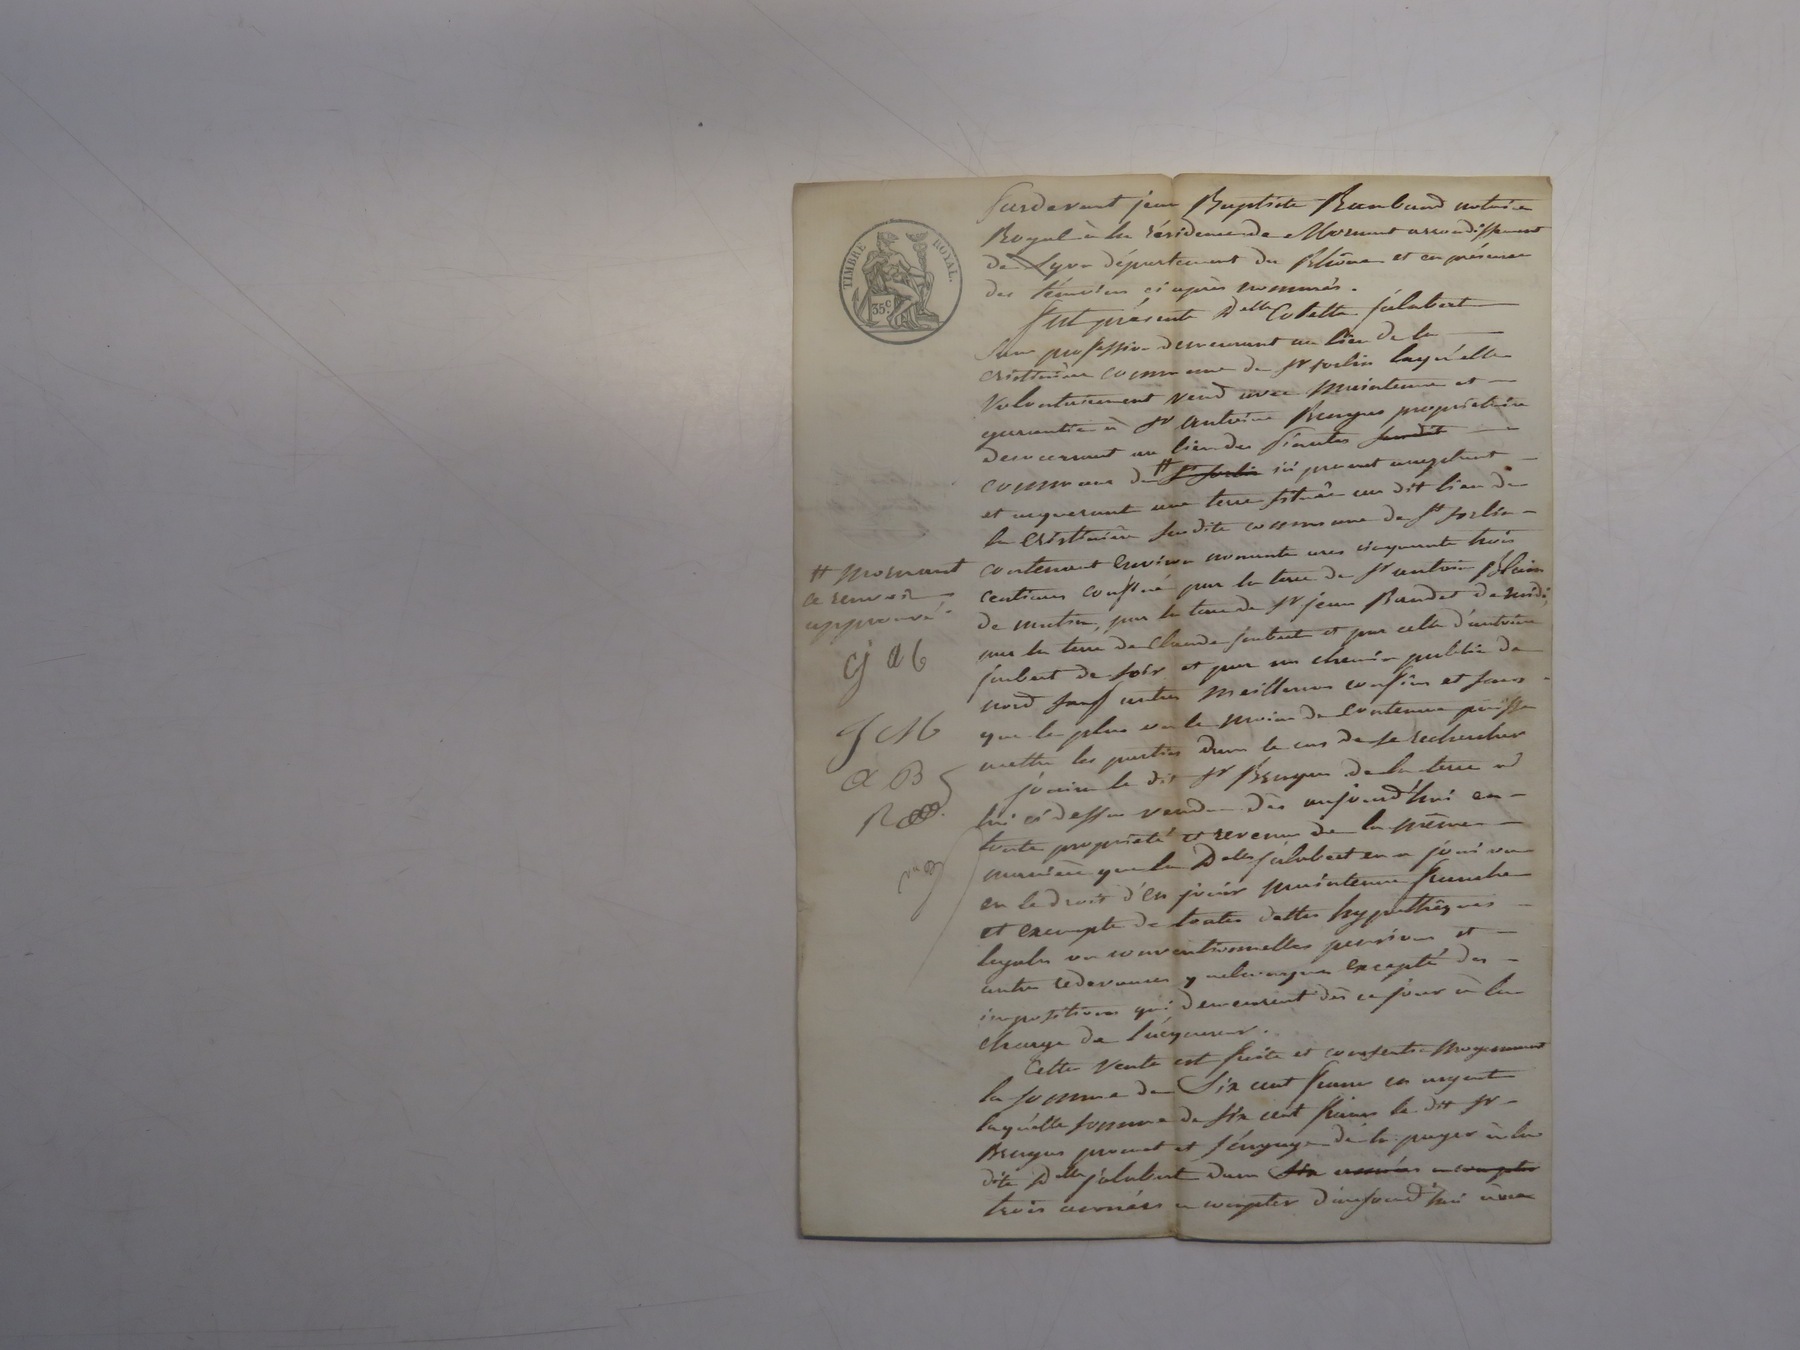 TIMBRE ROYAL.
35c
Pardevant jean Baptiste Rambaud notaire
Royal à la résidence de Mornant arrondissement
de Lyon département du Rhône et en présence
des témoins ci après nommés.
fut présente Delle Colette jalabert
Sans profession demeurant au lieu de la
commune de St Sorlin laquelle
Volontairement vend avec maintenue et
garantie à Sr antoine proprietaire
demeurant au lieu des susdit
commune de # St Sorlin ici présent acceptant
et acquerant une terre située au dit lieu de
la susdite commune de St Sorlin
contenant Environ nonante ares cinquante trois
centiares confiné par la terre de Sr antoine
de matin, par la terre de Sr jean de midi,
par la terre de Claude joubert et par celle d'antoine
joubert de soir et par un chemin public de
nord sauf autres meilleures confins et sans
que le plus ou le moins de Contenue puisse
mettre les parties dans le cas de se rechercher
jouira le dit Sr de la terre à
lui ci dessus vendue dès aujourd'hui en
toute propriété et revenu de la même
manière que la Delle jalabert en a joui ou
eu le droit d'en jouir maintenue franche
et exempte de toutes dettes hypothèques
legales ou conventionnelles pensions et
autre redevances quelconques excepté des
impositions qui demeurent dès ce jour à la
charge de l'acquereur.
Cette Vente est faite et consentie Moyennant
la somme de Six cent francs en argent
laquelle somme de six cent francs le dit Sr
promet et s'engage de la payer à la
dite Delle jalabert dans six années a compter
trois années a compter d'aujourd'hui avec
# Mornant
ce renvoi
approuvé
C j a b
J M
a B
R